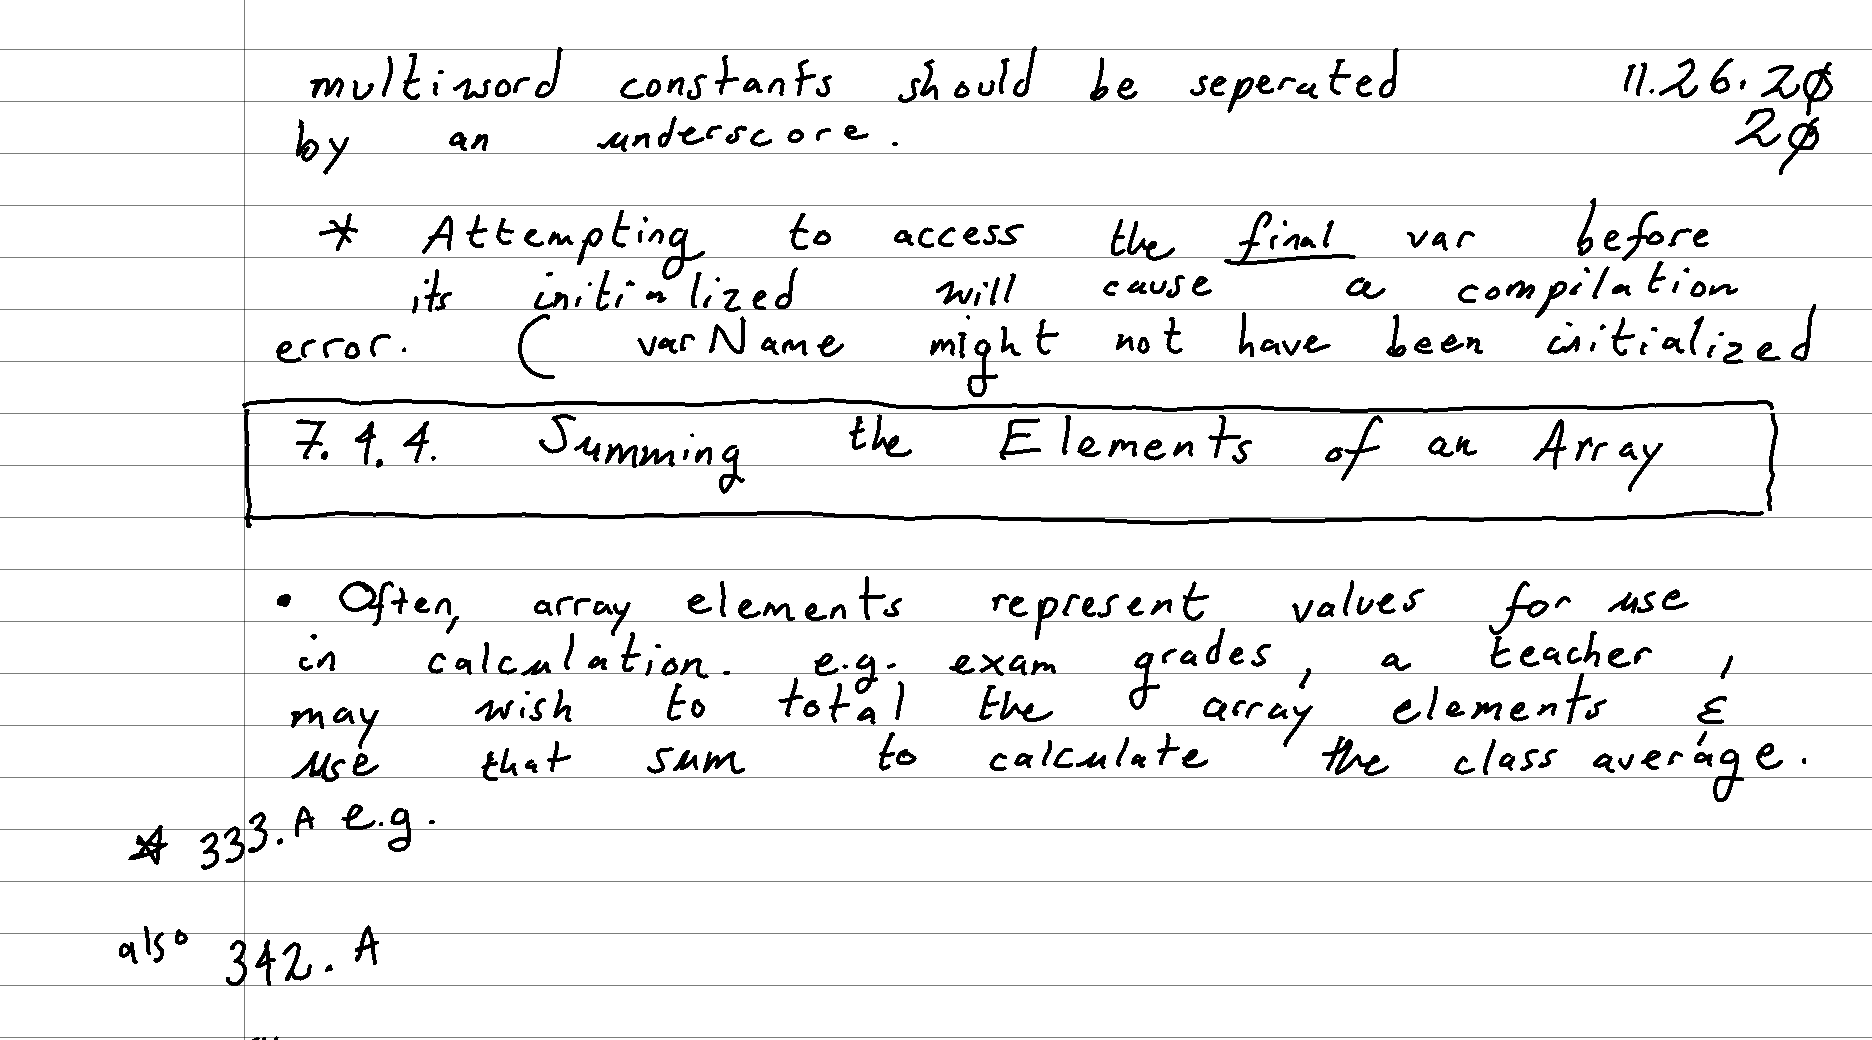 multiword constants should be seperated 11.26.20
by an underscore. 20
* Attempting to access the final var before
its initialized will cause a compilation
error. ( varName might not have been initialized
7.4.4. Summing the Elements of an Array
• Often, array elements represent values for use
in calculation. e.g. exam grades, a teacher,
may wish to total the array elements &
use that sum to calculate the class average.
* 333.A e.g.
also 342.A